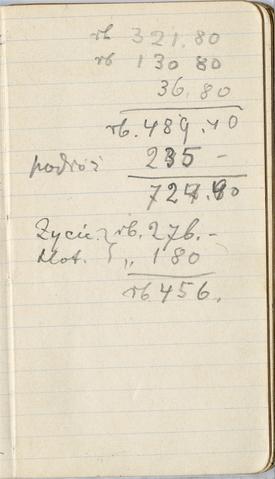 rb 321.80
rb 130 80
36.80
rb. 489.40
podróż 235 -
724.40
Życie rb. 276.-
" 180
rb 456.